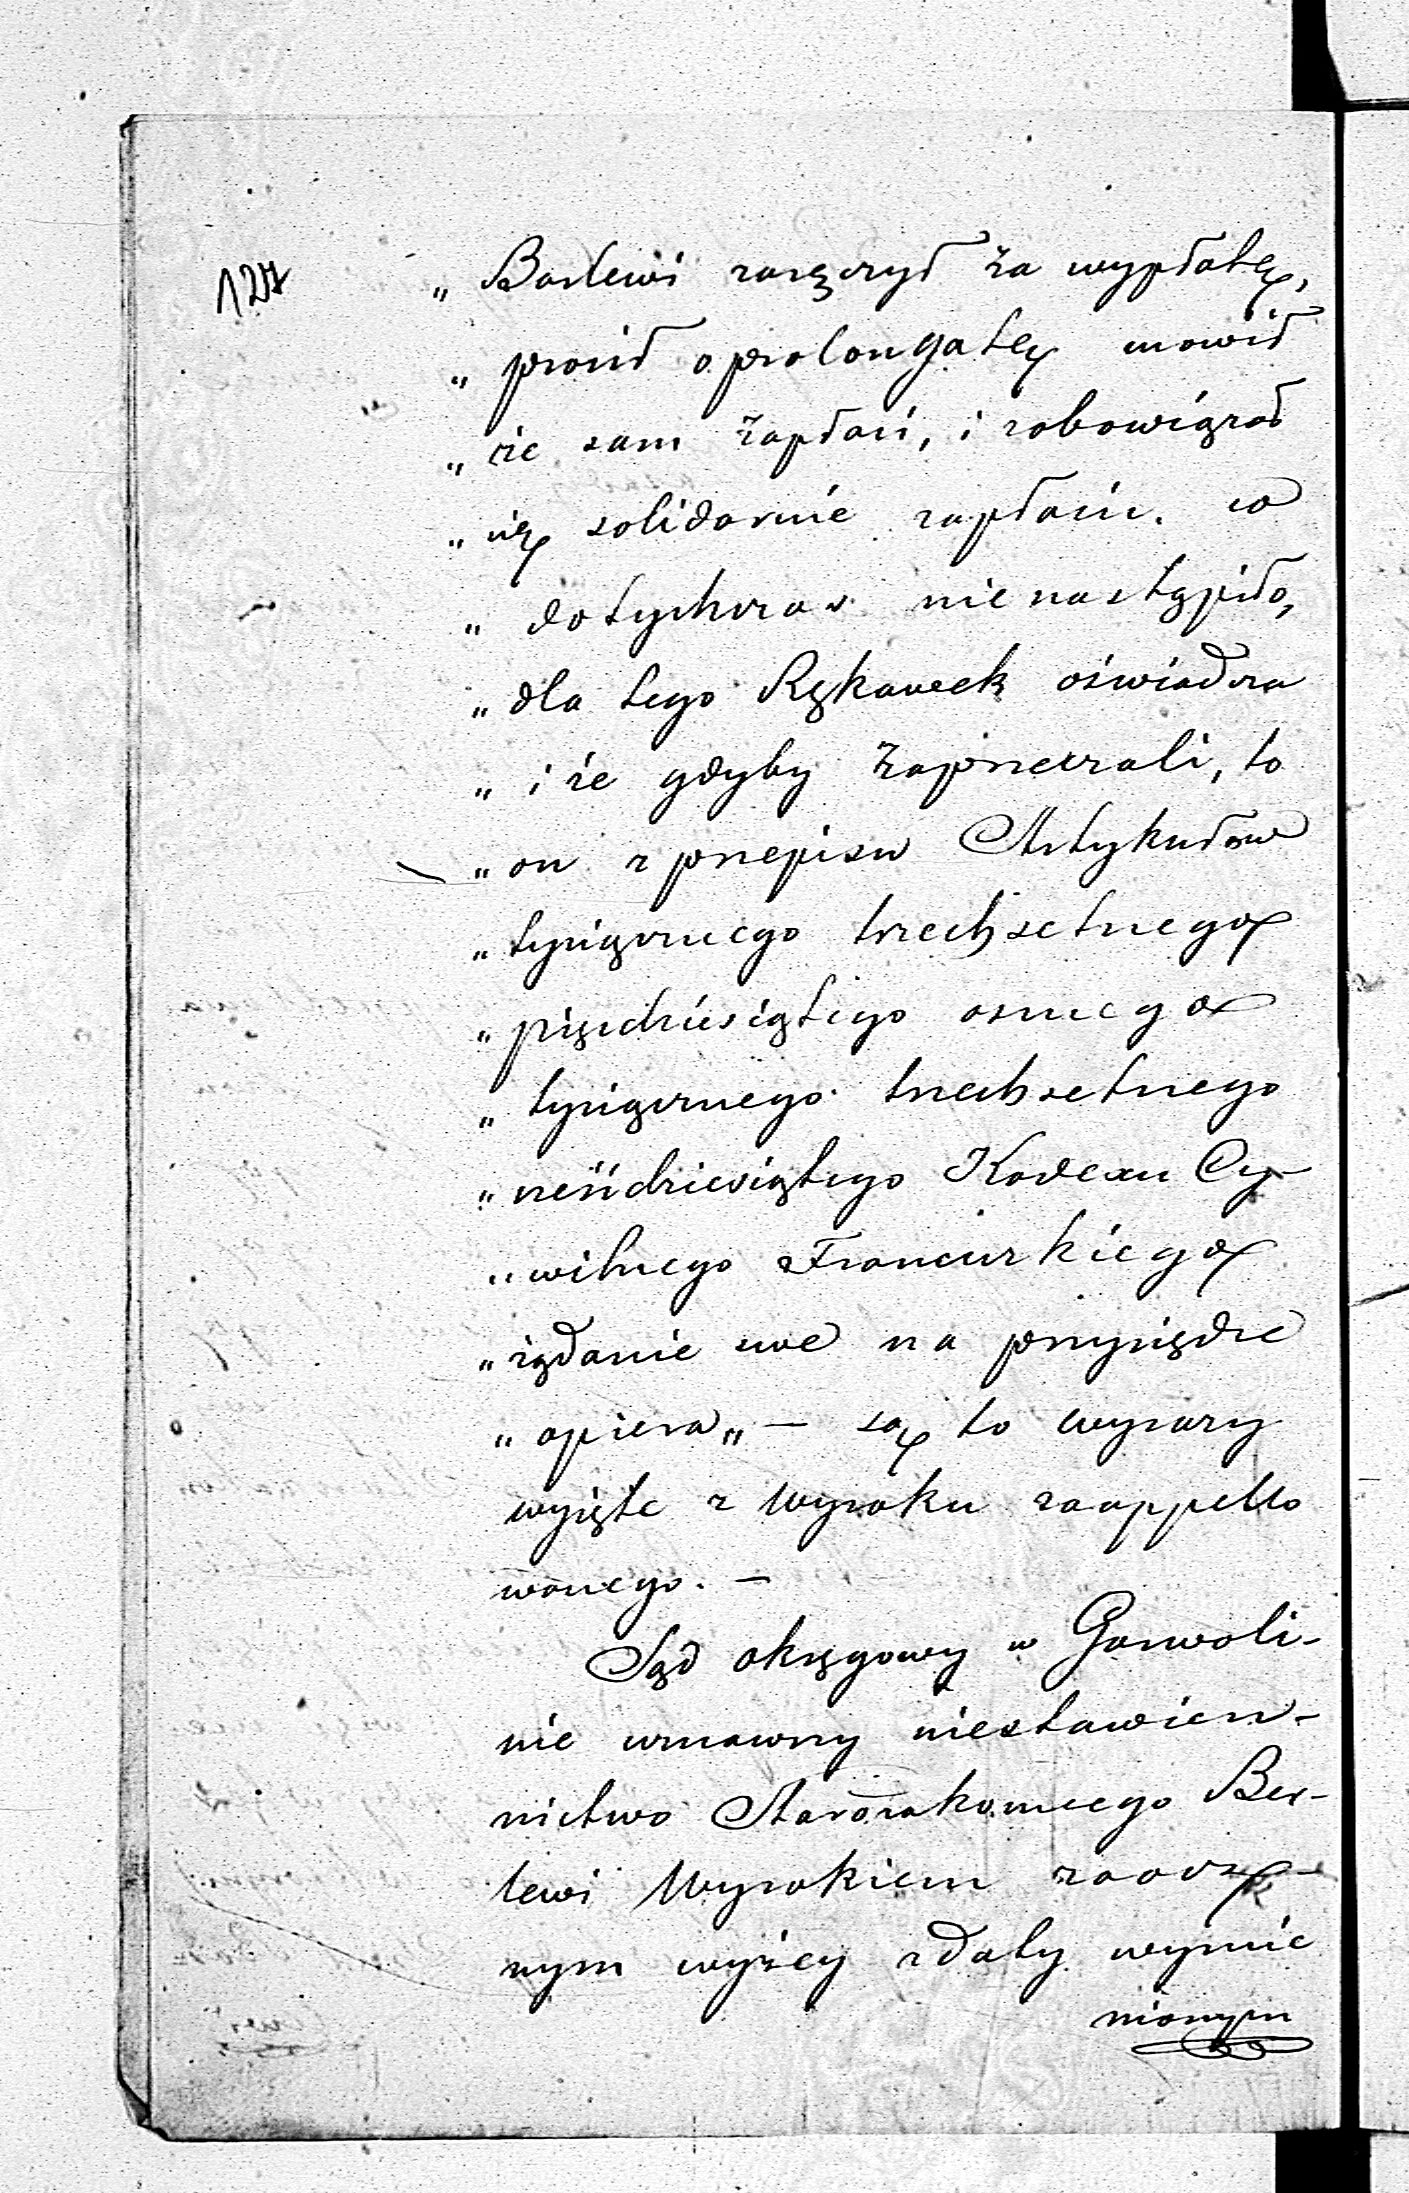 127
„ Barlewi zaręczył za wypłatę,
„ prosił o prolongatę mowił
„ że sam zapłaci, i zobowiązał
„ się solidarnie zapłacić. co
„ dotychczas nienastąpiło,
„ dla tego Rękawek oświadcza
„ iże gdyby zaprzeczali, to
„ on z przepisu Artykułow
„ tysiącznego trzechsetnego
„ pięćdziesiątego osmego
„ tysiącznego trzechsetnego
„ sześćdziesiątego Kodexu Cy-
„ wilnego Francuzkiego
„ żądanie swe na przysiędze
„ opiera„ — są to wyrazy
wyjęte z Wyroku zaappello
wanego. —
Sąd okręgowy w Garwoli-
nie uznawszy niestawien-
nictwo Starozakonnego Ber-
lewi Wyrokiem zaocz-
nym wyżey z daty wymie
nionym